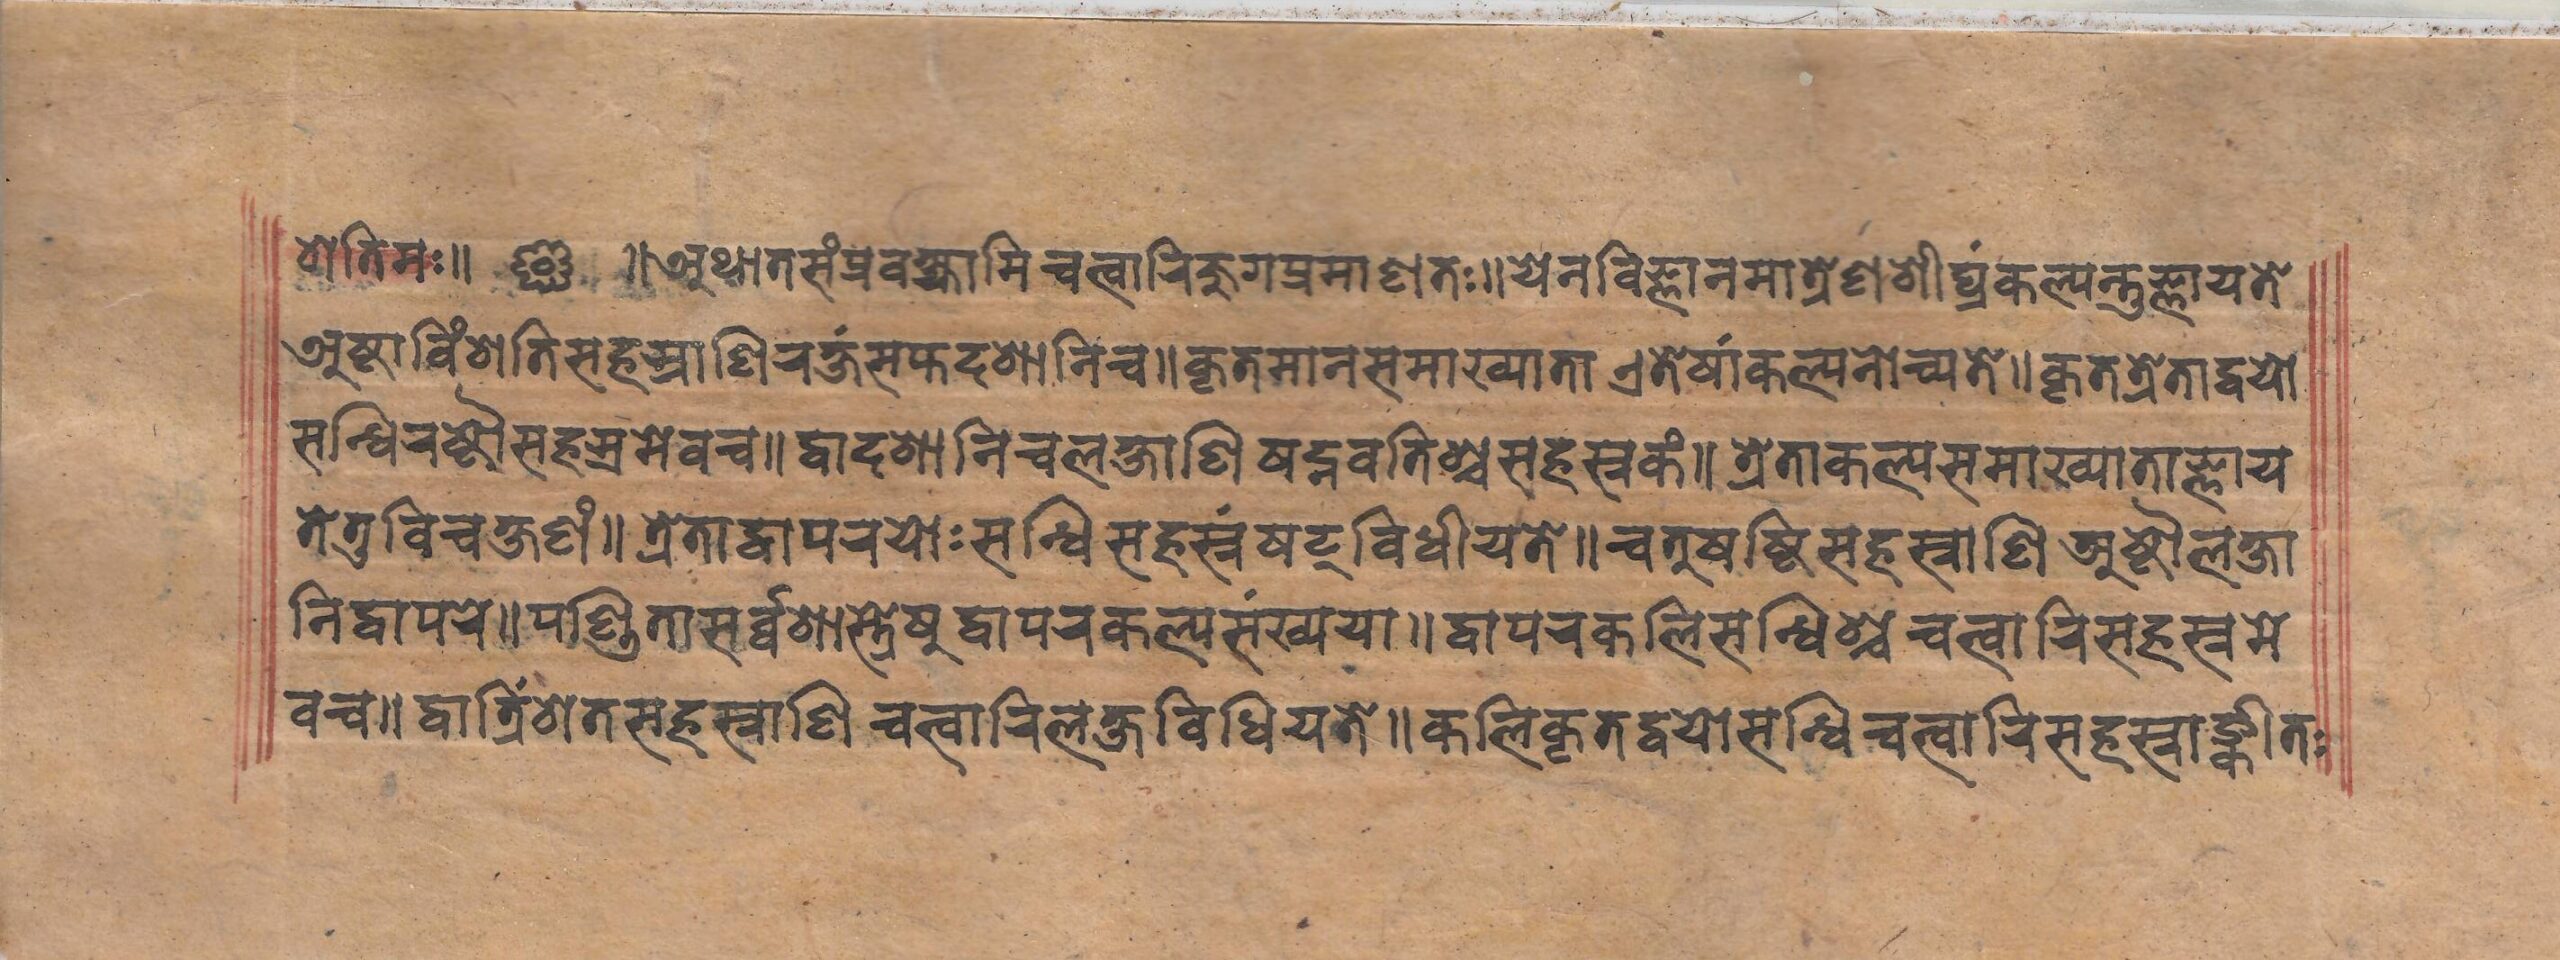 शेतिमः॥ ॥अथातसंप्रवक्ष्यामि चत्वारिजुगप्रमाणतः॥येनविज्ञानमात्रेणशीघ्रंकल्पन्तुज्ञायते
अष्टाविंशतिसहस्राणिरक्षंसप्तदशानिच॥कृतमानसमाख्याता एतेषांकल्पनोच्यते॥कृतत्रेताद्वयो
सन्धिरष्टौसहस्रमेवच॥द्वादशानिचलक्षाणि षट्नवतिश्चसहस्रकं॥त्रेताकल्पसमाख्याताज्ञाय
तेतुविचक्षणं॥त्रेताद्वापरयोःसन्धिसहस्रंषट्विधीयते॥चतुषष्टिसहस्राणि अष्टौलक्षा
निद्वापरे॥पण्डितासर्व्वशास्त्रेषुद्वापरकल्पसंख्यया॥द्वापरकलिसन्धिश्च चत्वारिसहस्रमे
वच॥द्वात्रिंशेतसहस्राणि चत्वारिलक्षविधियते॥कलिकृतद्वयोसन्धिचत्वारिसहस्राङ्कीतः